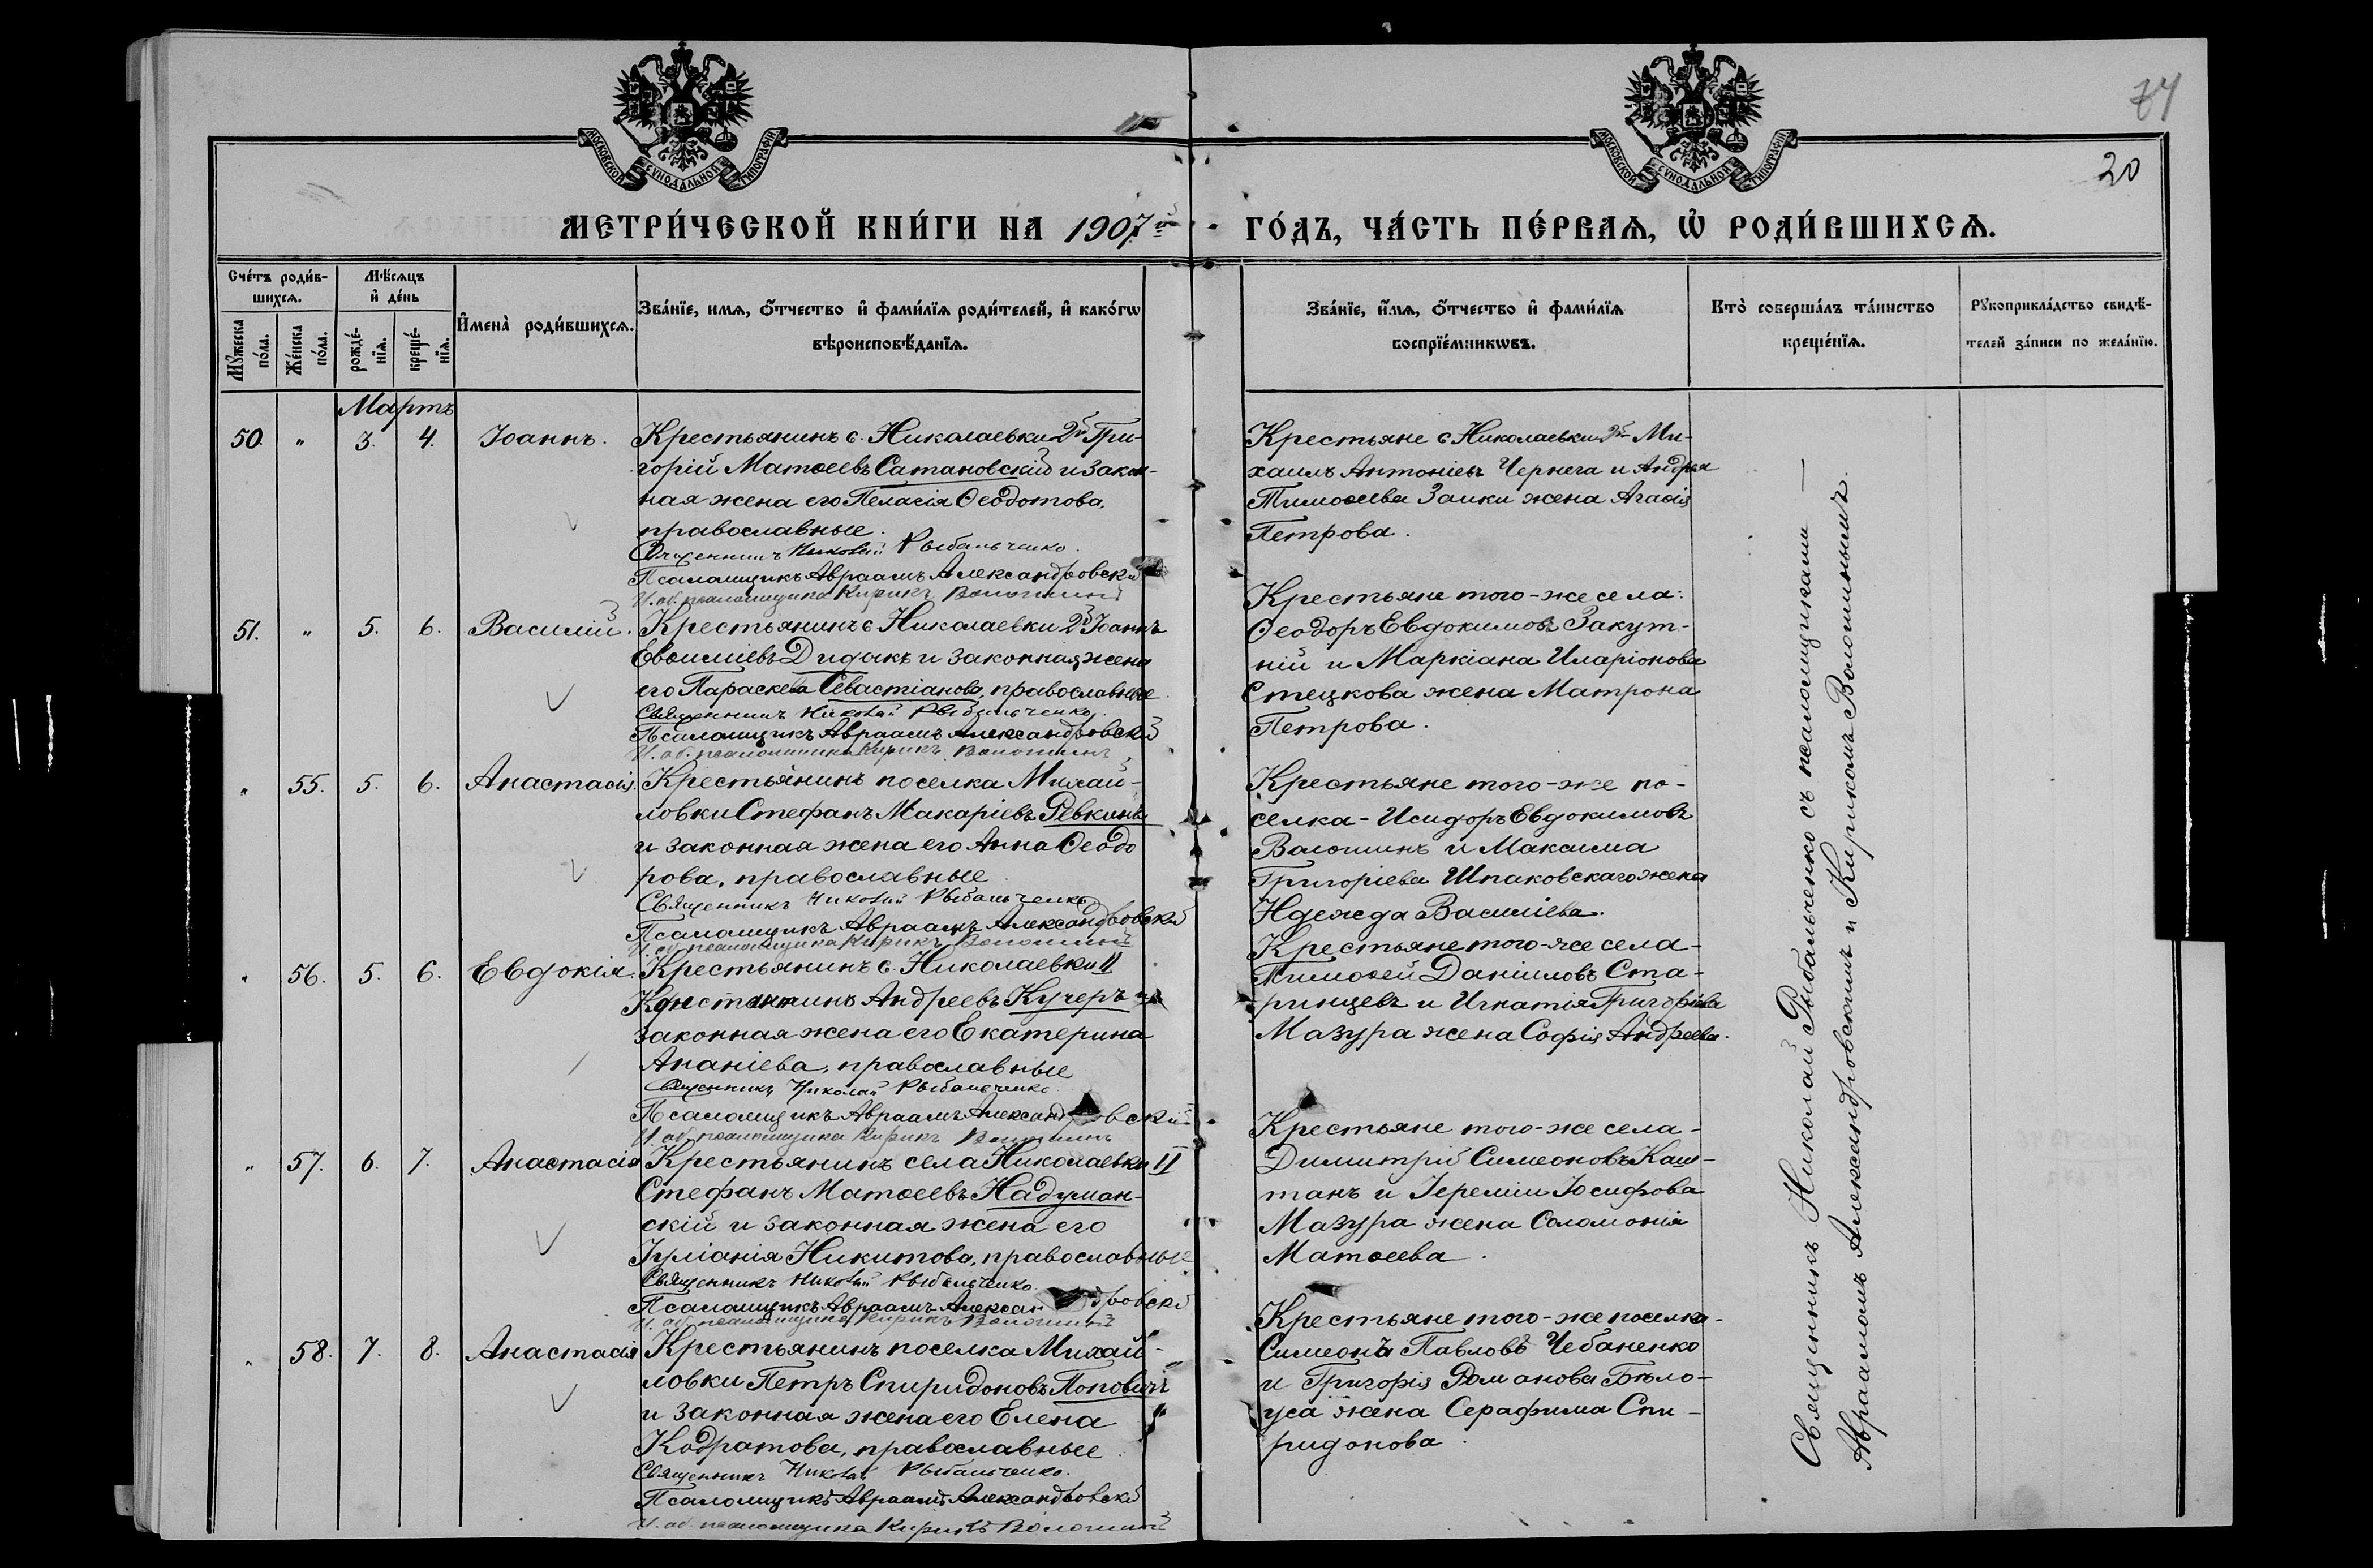 74
20
МОСКОВСКОЙ СѴНОДАЛЬНОЙ ТИПОГРАФІИ
МОСКОВСКОЙ СѴНОДАЛЬНОЙ ТИПОГРАФІИ
МЕТРИ́ЧЕСКОЙ КНИ́ГИ НА 1907й ГО́ДЪ, ЧА́СТЬ ПЕ́РВАѦ, Ѡ҆ РОДИ́ВШИХСѦ.
Сче́тъ роди́в-
шихсѧ.
Мꙋ́жеска по́ла.
Же́нска по́ла.
Мѣ́сѧцъ
и҆ де́нь
рожде́-
нїѧ.
креще́-
нїѧ.
И҆мена̀ роди́вшихсѧ.
Зва́нїе, имѧ, ѻ҆́тчество и҆ фами́лїѧ роди́телей, и҆ како́гѡ
вѣроисповѣ́данїѧ.
Зва́нїе, и҆́мѧ, ѻ҆́тчество и҆ фами́лїѧ
воспрїе́мникѡвъ.
Кто̀ соверша́лъ та́инство
креще́нїѧ.
Рꙋкоприкла́дство свидѣ́-
телей за́писи по жела́нїю.
Мартъ
50. " 3. 4. Іоаннъ.
Крестьянинъ с. Николаевки 2й Гри-
горій Матѳеевъ Сатановскій и закон-
ная жена его Пелагія Ѳеодотова,
православные.
Священникъ Николай Рыбальченко.
Псаломщикъ Авраамъ Александровскій
И. об. псаломщика Кирикъ Волошинъ
Крестьяне с Николаевки 2й Ми-
хаилъ Антоніевъ Чернега и Андрея
Тимоѳеева Заики жена Агаѳія
Петрова.
51. " 5. 6. Василій.
Крестьянинъ с Николаевки 2й Іоаннъ
Евѳиміевъ Дидыкъ и законная жена
его Параскева Севастіанова, православные.
Священникъ Николай Рыбальченко
Псаломщикъ Авраамъ Александровскій
И. об. псаломщика Кирикъ Волошинъ
Крестьяне того-же села:
Ѳеодоръ Евдокимовъ Закут-
ній и Маркіана Иларіонова
Стецкова жена Матрона
Петрова.
" 55. 5. 6. Анастасія.
Крестьянинъ поселка Михай-
ловки Стефанъ Макаріевъ Ревкинъ
и законная жена его Анна Ѳеодо
рова, православные
Священникъ Николай Рыбальченко
Псаломщикъ Авраамъ Александровскій
И. об. псаломщика Кирикъ Волошинъ
Крестьяне того-же по-
селка - Исидоръ Евдокимовъ
Волошинъ и Максима
Григоріева Шпаковскаго жена
Ндежда Василіева.
" 56. 5. 6. Евдокія.
Крестьянинъ с. Николаевки II
Константинъ Андреевъ Кучеръ и
законная жена его Екатерина
Ананіева, православные
Священникъ Николай Рыбальченко
Псаломщикъ Авраамъ Александровскій
И. об. псаломщика Кирикъ Волошинъ
Крестьяне того-же села-
Тимоѳей Даніиловъ Ста-
ринцевъ и Игнатія Григоріева
Мазура жена Софія Андреева.
" 57. 6. 7. Анастасія
Крестьянинъ села Николаевки II
Стефанъ Матѳеевъ Надуман-
скій и законная жена его
Іуліанія Никитова, православные
Священникъ Николай Рыбальченко
Псаломщикъ Авраамъ Александровскій
И. об. псаломщика Кирикъ Волошинъ
Крестьяне того-же села-
Димитрій Симеоновъ Каш-
танъ и Іереміи Іосифова
Мазура жена Соломонія
Матѳеева.
" 58. 7. 8. Анастасія
Крестьянинъ поселка Михай-
ловки Петръ Спиридоновъ Поповичъ
и законная жена его Елена
Кодратова, православные.
Священникъ Николай Рыбальченко.
Псаломщикъ Авраамъ Александровскій
И. об. псаломщика Кирикъ Волошинъ
Крестьяне того-же поселка-
Симеонъ Павловъ Чебаненко
и Григорія Романова Бѣло-
уса жена Серафима Спи-
ридонова.
Священникъ Николай Рыбальченко съ псаломщиками —
Авраамомъ Александровскимъ и Кирикомъ Волошинымъ.